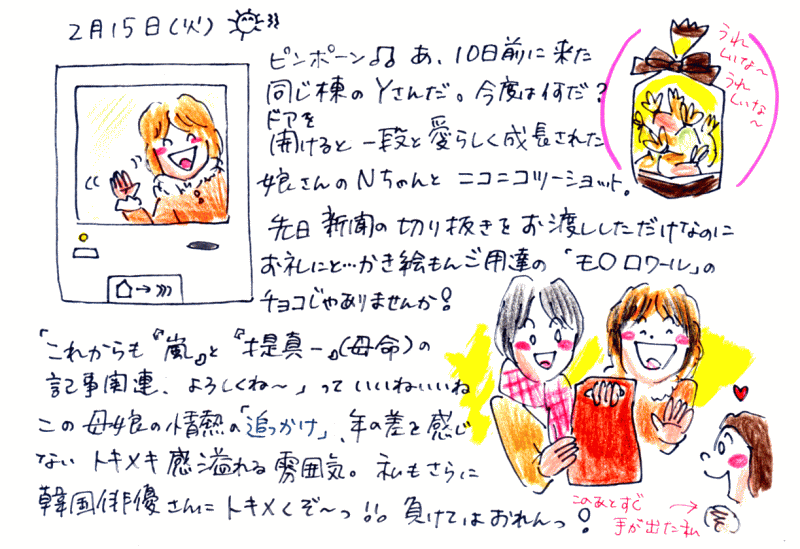 2月15日(火)
ピンポーン♫ あ、10日前に来た
同じ棟のYさんだ。今度は何だ?
ドアを
開けると 一段と愛らしく成長された
娘さんのNちゃんと ニコニコツーショット。
うれ
しいな〜
うれ
しいな
〜
先日 新聞の切り抜きをお渡ししただけなのに
お礼にと…かき絵もんご用達の 「モ〇ロワール」の
チョコじゃありませんか!
「これからも『嵐』と『堤真一』(母命)の
記事関連、よろしくね〜」って いいねいいね
この母娘の情熱の「追っかけ」、年の差を感じ
ない トキメキ感溢れる雰囲気。私もさらに
韓国俳優さんにトキメくぞ〜っ!! 負けてはおれんっ!
このあとすぐ
手が出た私